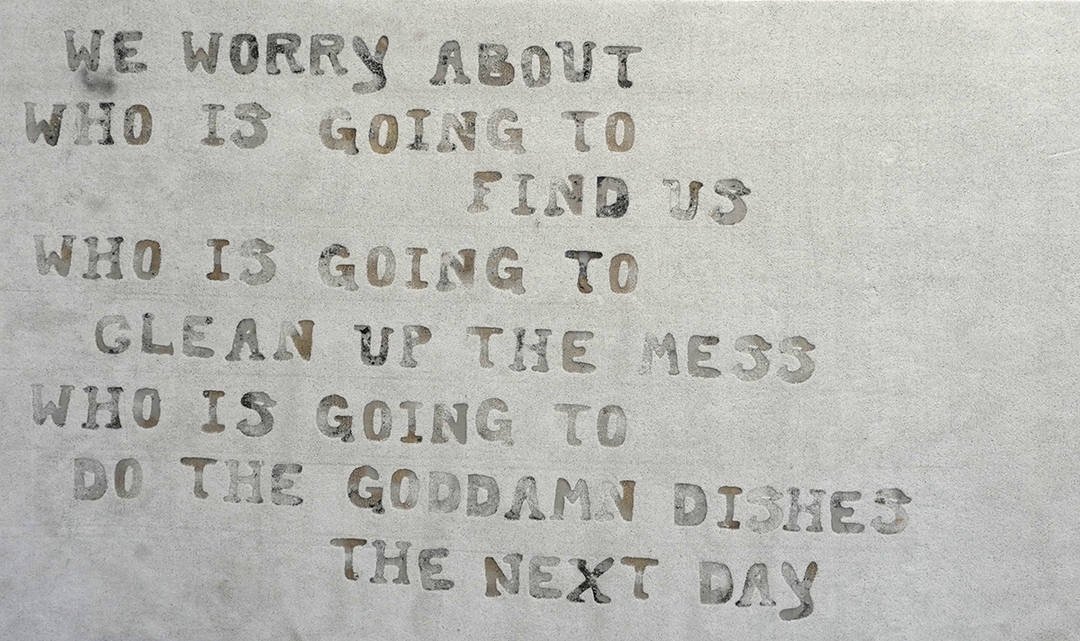 WE WORRY ABOUT
WHO IS GOING TO
FIND US
WHO IS GOING TO
CLEAN UP THE MESS
WHO IS GOING TO
DO THE GODDAMN DISHES
THE NEXT DAY